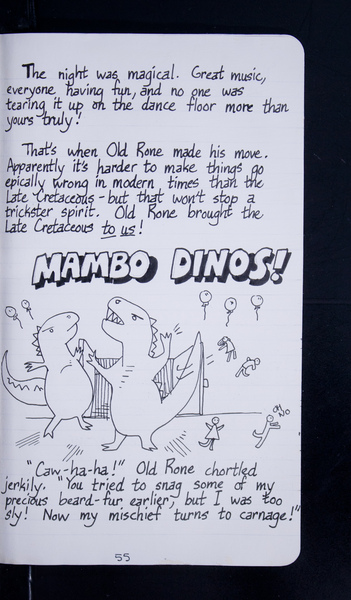 The night was magical. Great music,
everyone having fun, and no one was
tearing it up on the dance floor more than
yours truly!
That's when Old Rone made his move.
Apparently it's harder to make things go
epically wrong in modern times than the
Late Cretaceous - but that won't stop a
trickster spirit. Old Rone brought the
Late Cretaceous to us!
MAMBO DINOS!
oh
No
"Caw-ha-ha!" Old Rone chortled
jerkily. "You tried to snag some of my
precious beard-fur earlier, but I was too
sly! Now my mischief turns to carnage!"
55